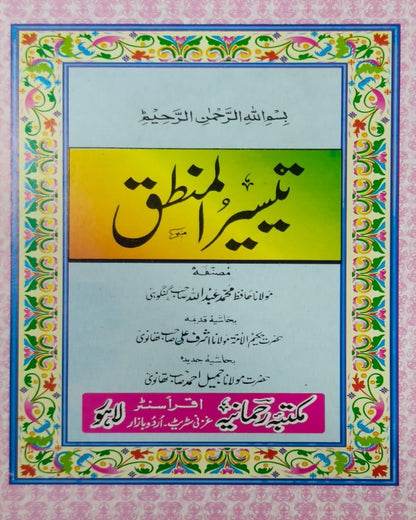 بسم الله الرحمن الرحيم
تيسير المنطق
مصنفه
مولانا حافظ محمد عبد الله صاحب گنگوہی
بحاشیہ قدیمہ
حضرت حکیم الامۃ مولانا اشرف علی صاحب تھانوی
بحاشیہ جدیدہ
حضرت مولانا جمیل احمد صاحب تھانوی
مکتبہ رحمانیہ اقرا سنٹر لاہور
غزنی سٹریٹ - اردو بازار